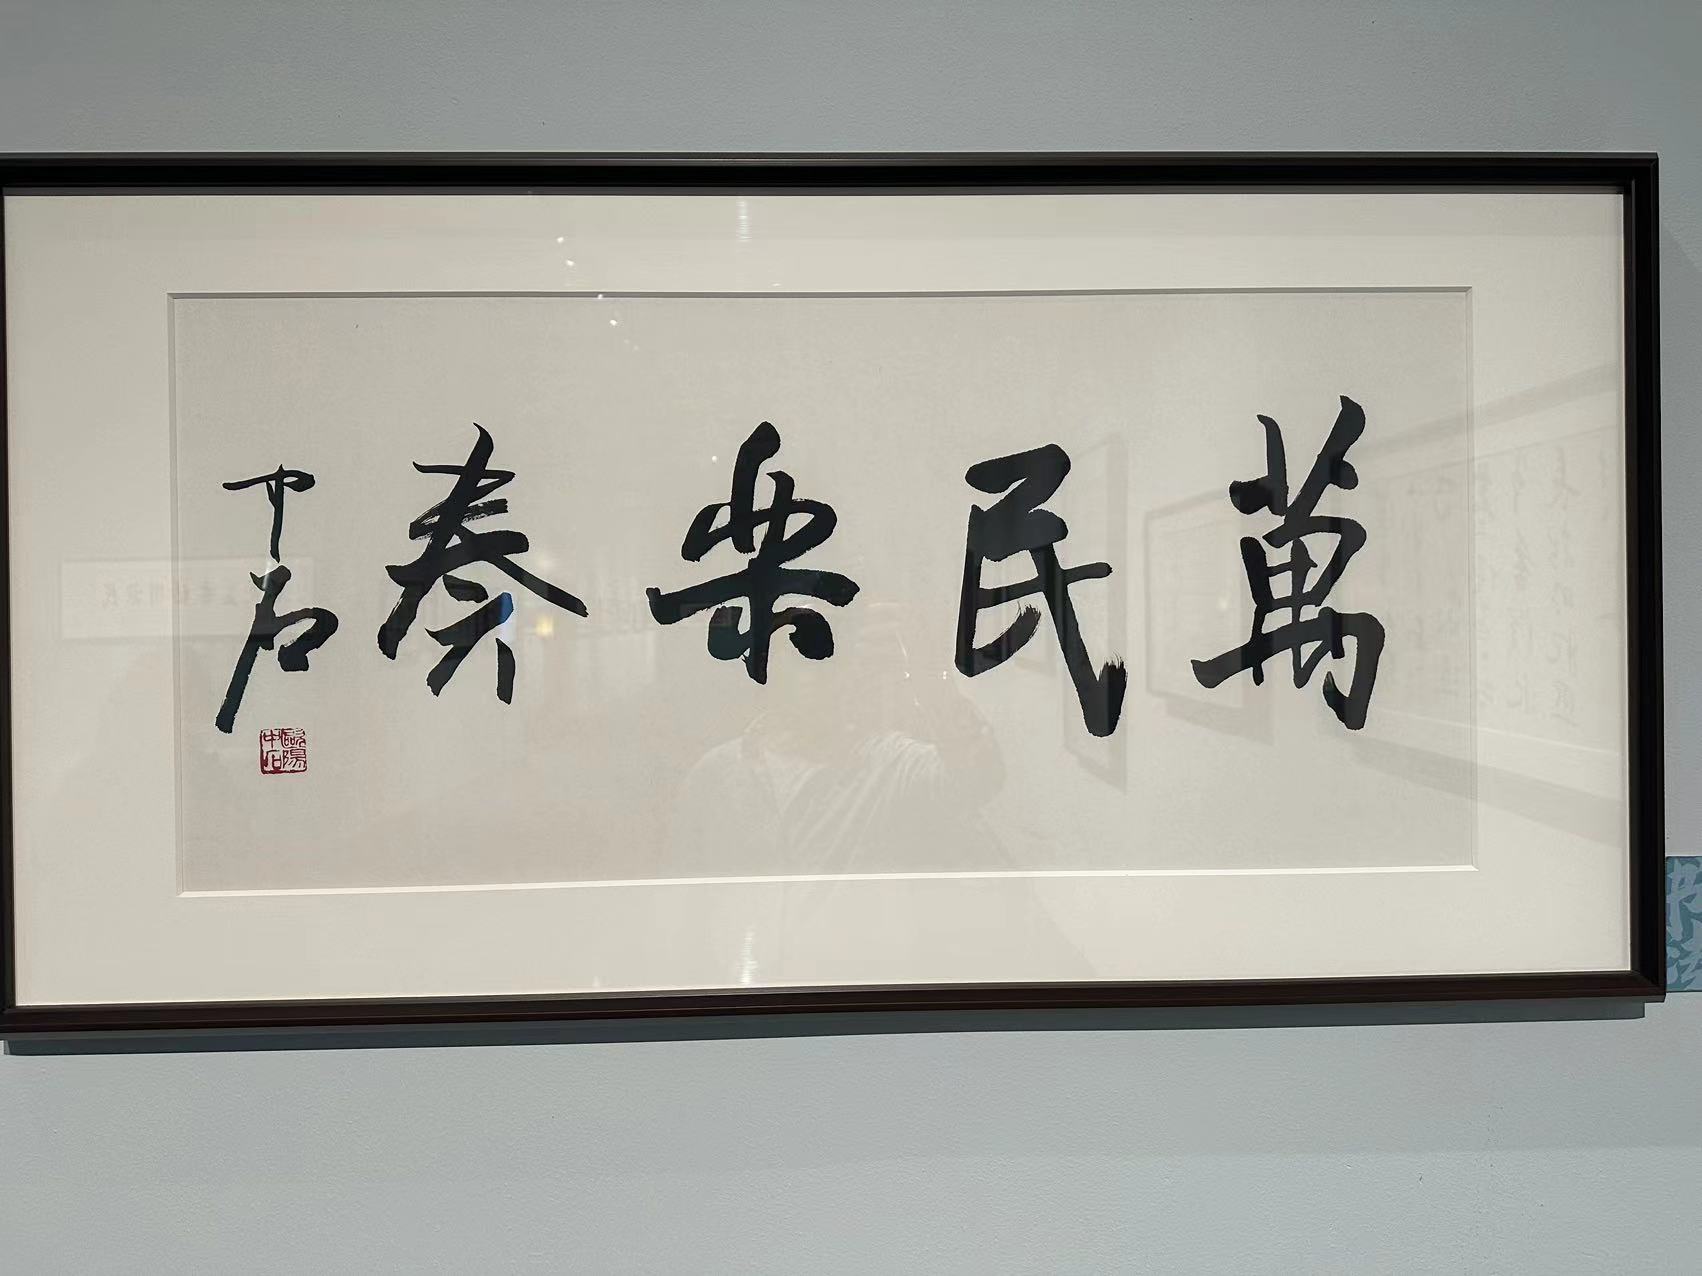 萬民樂奏
中石
歐陽中石